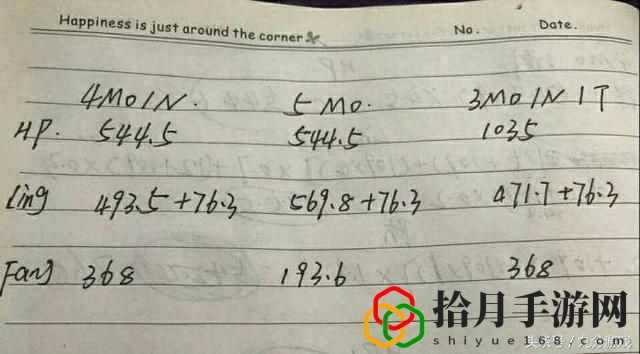 Happiness is just around the corner
No. Date.
4M01N. 5 Mo. 3M01N 1T
HP. 544.5 544.5 1035
Ling 493.5+76.3 569.8+76.3 471.7+76.3
Fang 368 193.6 368
拾月手游网
shiyue168.com